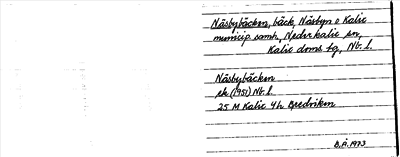 Näsbybäcken, bäck, Näsbyn o Kalix
municip. samh., Nederkalix sn,
Kalix doms. tg, Nb. l.
Näsbybäcken
ek (1951) Nb. l.
25 M Kalix 4h Bredviken
B.Å. 1973